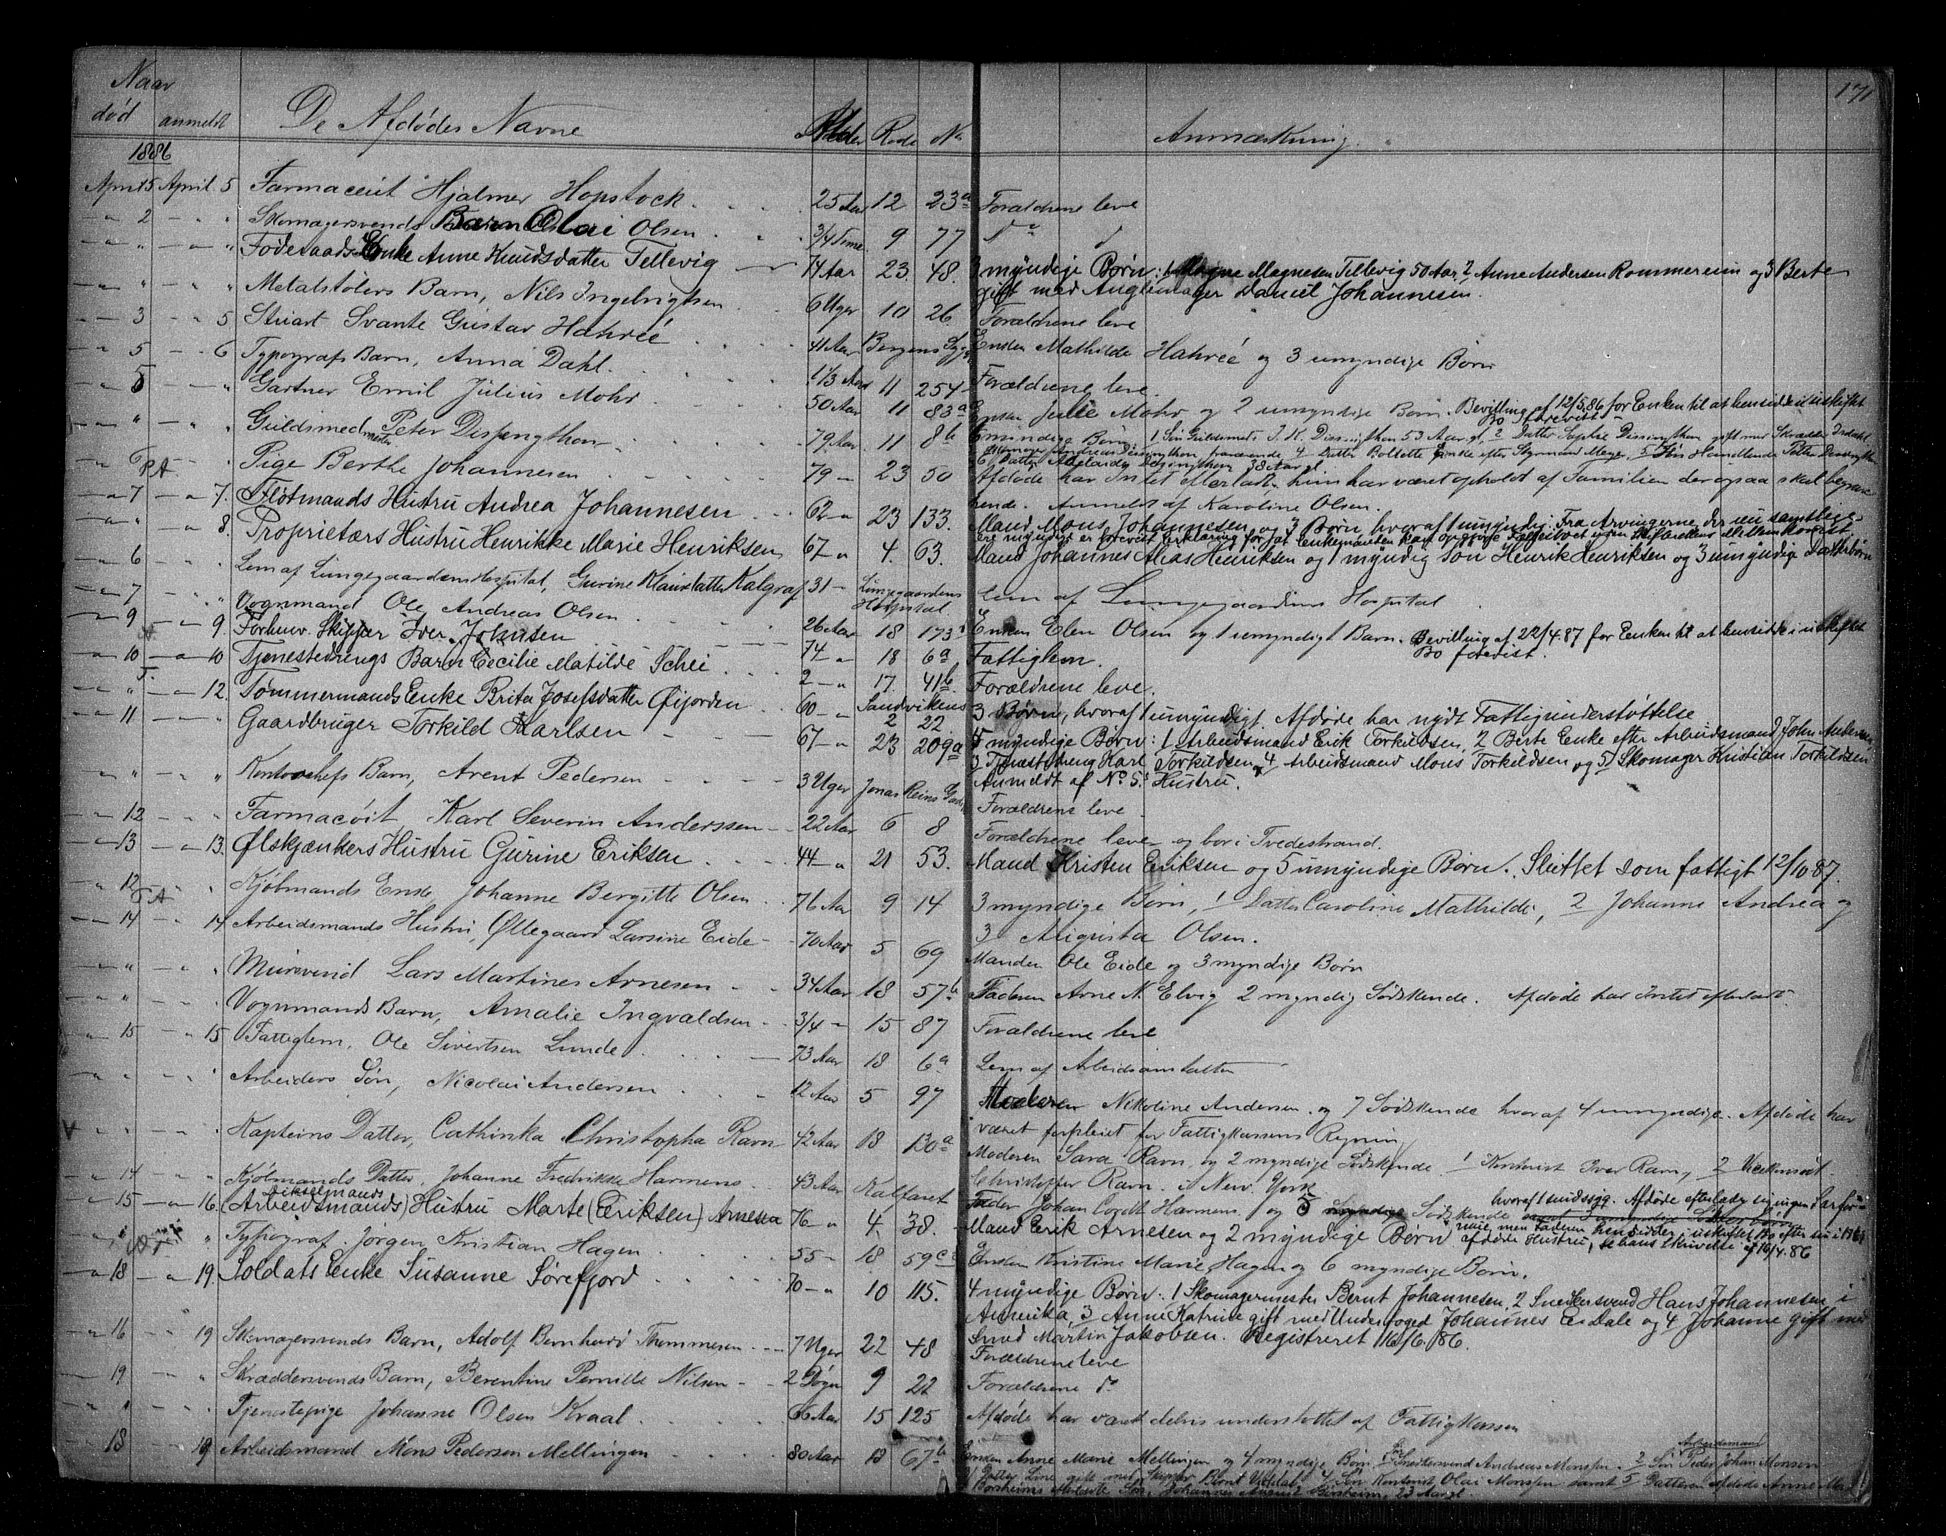 Naar
død anmeldt De Afdødes Navne Alder Rode No Anmærkning. 171
1886
April 5 April 5 Farmaceut Hjalmer Hopstock 25 Aar 12 23a Forældrene leve
" 2 " " Skomagersvends Barn Olai Olsen 3/4 Time 9 77 do
" " " " Føderaads Enke Anne Knudsdatter Tellevig 74 Aar 23 48. 3 myndige Børn: 1 Magne Magnesen Tellevig 50 Aar, 2 Anne Andersen Rommereim og 3 Berte
gift med Daniel Johannesen.
" " " " Metalstøbers Barn, Nils Ingebrigtsen 6 Uger 10 26 Forældrene leve
" 3 " 5 Stuart Svante Gustav Hahreé 41 Aar Bergens Enken Mathilde Hahreé og 3 umyndige Børn
" 5 " 6 Typografs Barn, Anna Dahl. 1 1/3 Aar 11 254 Forældrene leve.
" 5 " " Gartner Emil Julius Mohr 50 Aar 11 83a Enken Julie Mohr og 2 umyndige Børn. Bevilling af 12/5.86 for Enken til at hensidde i uskiftet
Bo forevist.
" " " " Guldsmedmester Peter Dissingthon 79 Aar 11 8b 6 myndige Børn, 1 Søn Guldsmed J. K. Dissingthon 53 Aar gl, 2 Datter Sophie Dissingthon gift med Skrædder
fraværende 4 Datter Enke efter Styrmand Meyer, 5 Søn Handlende Petter Dissingthon
6 Datter Dissingthon 38 Aar gl.
" 6 " " Pige Berthe Johannesen 79 " 23 50 Afdøde har Intet efterladt, hun har været opholdt af Familien der ogsaa skal begrave
hende. Anmeldt af Karoline Olsen.
" 7 " 7. Fløtmands Hustru Andrea Johannesen 62 " 23 133. Mand Mons Johannesen og 3 Børn, hvoraf 1 umyndig. Fra Arvingerne, der nu samtlige
ere myndige er forevist Erklæring for at Enkemanden kan opgjøre Fællesboet uden Skifterettens Mellemkomst
" " " 8. Proprietærs Hustru Henrikke Marie Henriksen 67 " 4. 63. Mand Johannes Alias Henriksen og 1 myndig Søn Henrik Henriksen og 3 umyndige Datterbørn
" 6 " " Lem af Lungegaardens Hospital, Gurine Klausdatter Kalgraf 31 " Lungegaardens Hospital Lem af Lungegaardens Hospital
" 7 " " Vognmand Ole Andreas Olsen 26 Aar 18 173 Enken Elen Olsen og 1 umyndigt Barn. Bevilling af 22/4.87 for Enken til at hensidde i uskiftet
Bo forevist.
" 9 " 9. Forhenv. Skipper Iver Johnsen 74 " 18 6a Fattiglem.
" 10 " 10 Tjenestedrengs Barn Cecilie Matilde Schei 2 " 17. 41b. Forældrene leve.
" 5. " 12. Tømmermands Enke Brita Josefsdatter Øifjorden 60 " Sandvikens 2 22 3 Børn, hvoraf 1 umyndigt. Afdøde har nydt Fattigunderstøttelse
" 11 " " Gaardbruger Torkild Karlsen 67 " 23 209a 5 myndige Børn: 1 Arbeidsmand Erik Torkildsen, 2 Berte Enke efter Arbeidsmand John Andersen
3 Tjenestedreng Karl Torkildsen, 4 Arbeidsmand Mons Torkildsen og 5 Skomager Kristian Torkildsen
Anmeldt af No 5's Hustru.
" " " " Barn, Arent Pedersen 3 Uger Jonas Reins Gade Forældrene leve
" 12 " " Farmacøit Karl Severin Anderssen 22 Aar 6 8 Forældrene leve og bor i Tvedestrand.
" 13 " 13. Ølskjænkers Hustru Gurine Eriksen 44 " 21 53. Mand Kristen Eriksen og 5 umyndige Børn. Sluttet som fattigt 12/10 87.
" 12 " " Kjøbmands Enke Johanne Bergitte Olsen 76 Aar 9 14 3 myndige Børn, 1 Datter Caroline Mathilde, 2 Johanne Andrea og
3 Augusta Olsen.
" 14 " 14 Arbeidsmands Hustru, Øllegaard Larsine Eide 70 Aar 5 69 Manden Ole Eide og 3 myndige Børn
" " " " Mursvend Lars Martines Arnesen 34 Aar 18 57b Faderen Arne N. Elvig 2 myndig Sødskende. Afdøde har Intet efterladt.
" " " " Vognmands Barn, Amalie Ingvaldsen 3/4 " 15 87 Forældrene leve
" 15 " 15 Fattiglem, Ole Sivertsen Lunde 73 Aar 18 6a Lem af Arbeidsanstalten
" " " " Arbeiders Søn, Nicolai Andersen 12 Aar 5 97 Moderen Nikoline Andersen og 7 Sødskende hvoraf 4 umyndige. Afdøde har
været forpleiet for Fattigkassens Regning
" " " " Kapteins Datter, Cathinka Christopha Ravn 42 Aar 18 130a Moderen Sara Ravn, og 2 myndige Sødskende 1 Kontorist Iver Ravn, 2
Christopher Ravn i New York
" 14 " " Kjøbmands Datter, Johanne Fredrikke Harmens 43 Aar Kalfaret Fader Johan Cordt Harmens og 5 myndige Sødskende hvoraf 1 sindssyg. Afdøde efterlader sig ingen
" 15 " 16. (Arbeidsmands) Hustru Marte (Eriksen) Arnesen 76 " 4. 38. Mand Erik Arnesen og 2 myndige Børn
afdøde Hustru, 16/4.86
" " " " Typograf Jørgen Kristian Hagen 55 " 18 59c Enken Kristine Marie Hagen og 6 myndige Børn.
" 18 " 19 Soldats Enke Susanne Sørefjord 70 " 10 115. 4 myndige Børn: 1 Skomagermester Bernt Johannesen, 2 Snedkersvend Hans Johannesen i
Amerika, 3 Anne Katrine gift med Underfoged Johannes Eidale og 4 Johanne gift med
Smed Martin Jakobsen. Registreret 16/6/86.
" 16 " 19 Skomagersvends Barn, Adolf Bernhard Thommesen 7 Uger 22 48 Forældrene leve
" 19 " " Skræddersvends Barn, Berentine Pernille Nilsen 2 Døgn 9 22 Forældrene do
" " " " Tjenestepige Johanne Olsen Kraal 66 Aar 15 125 Afdøde har været delvis understøttet af Fattigkassen
" 18 " 19 Arbeidsmand Mons Pedersen Mellingen 80 Aar 13 67b Enken Anne Marie Mellingen og 4 myndige Børn 1 Søn Snedkersvend Andreas Monsen. 2 Søn Arbeidsmand Peder Johan Monsen
3 Datter Line gift med Skipper Bernt 4 Søn Kontorist Olai Monsen samt 5 Datteren afdøde Anne
Johannes August 23 Aar gl.